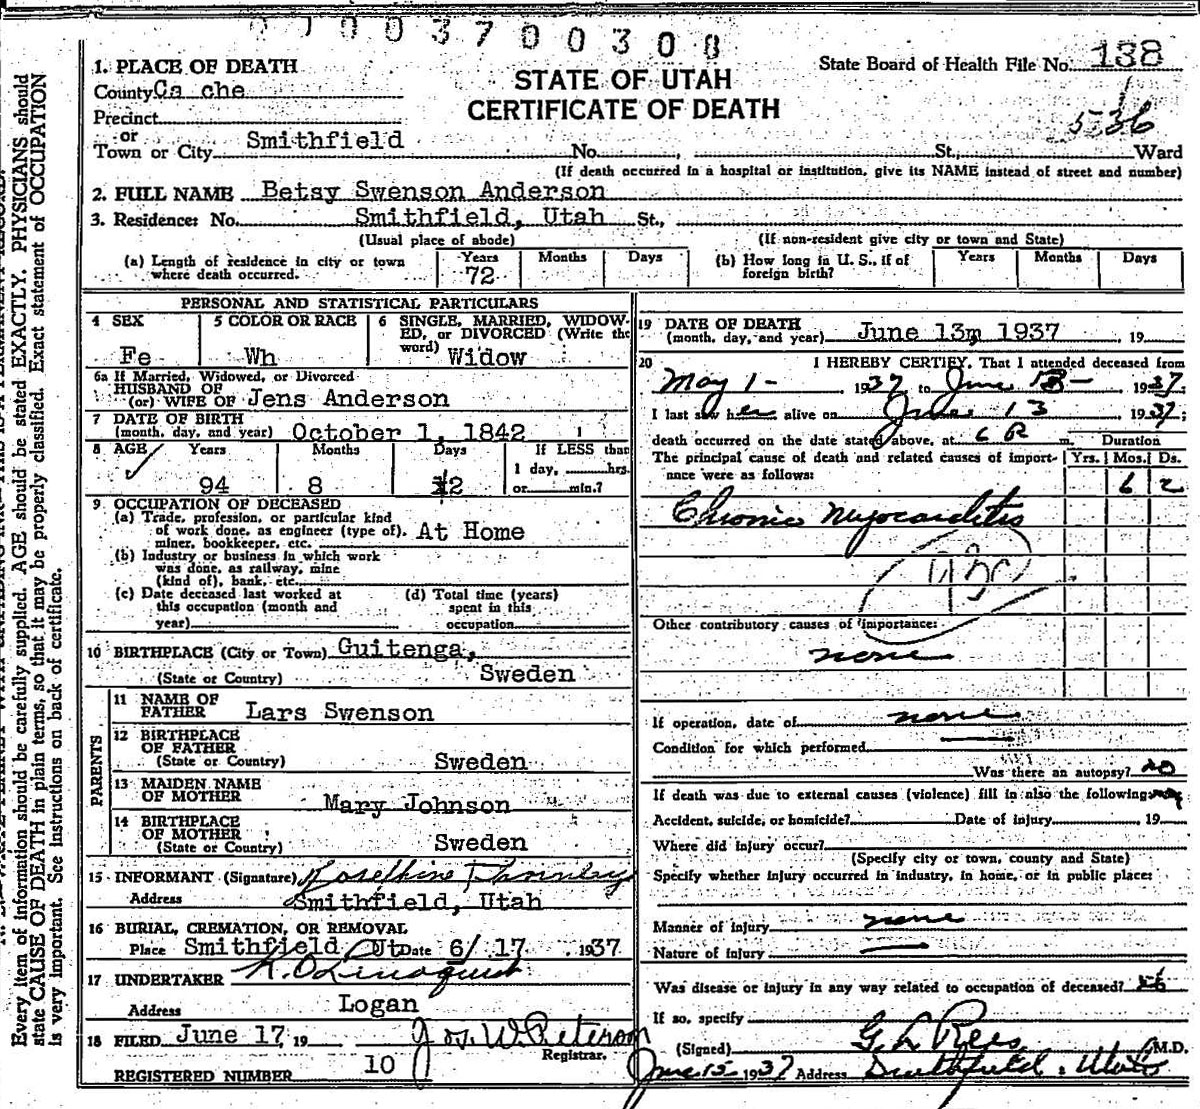 0 7 0 0 3 7 0 0 3 0 8
1. PLACE OF DEATH
STATE OF UTAH
CERTIFICATE OF DEATH
State Board of Health File No. 138
536
County Ca che
Precinct
or
Town or City Smithfield No. , St., Ward
(If death occurred in a hospital or institution, give its NAME instead of street and number)
2. FULL NAME Betsy Swenson Anderson
3. Residence: No. Smithfield, Utah St.,
(Usual place of abode) (If non-resident give city or town and State)
(a) Length of residence in city or town where death occurred. Years 72 Months Days
(b) How long in U. S., if of foreign birth? Years Months Days
PERSONAL AND STATISTICAL PARTICULARS
4 SEX Fe
5 COLOR OR RACE Wh
6 SINGLE, MARRIED, WIDOW-
ED, or DIVORCED (Write the
word) Widow
6a If Married, Widowed, or Divorced
HUSBAND OF
(or) WIFE OF Jens Anderson
7 DATE OF BIRTH
(month, day, and year) October 1, 1842
8 AGE Years Months Days If LESS than
1 day, hrs.
94 8 12 or min.?
9 OCCUPATION OF DECEASED
(a) Trade, profession, or particular kind
of work done, as engineer (type of). At Home
miner, bookkeeper, etc.
(b) Industry or business in which work
was done, as railway, mine
(kind of), bank, etc.
(c) Date deceased last worked at
this occupation (month and
year)
(d) Total time (years)
spent in this
occupation
10 BIRTHPLACE (City or Town) Guitenga,
(State or Country) Sweden
PARENTS
11 NAME OF
FATHER Lars Swenson
12 BIRTHPLACE
OF FATHER
(State or Country) Sweden
13 MAIDEN NAME
OF MOTHER Mary Johnson
14 BIRTHPLACE
OF MOTHER
(State or Country) Sweden
15 INFORMANT (Signature) Josephine
Address Smithfield, Utah
16 BURIAL, CREMATION, OR REMOVAL
Place Smithfield Ut Date 6/ 17 1937
17 UNDERTAKER
Address Logan
18 FILED June 17, 19 Jos. W. Peterson
Registrar.
REGISTERED NUMBER 10
19 DATE OF DEATH
(month, day, and year) June 13m 1937 , 19
20 I HEREBY CERTIFY, That I attended deceased from
May 1 - 1937 to June 13 - 1937
I last saw her alive on June 13 1937;
death occurred on the date stated above, at 6 m. Duration
The principal cause of death and related causes of import-
ance were as follows: Yrs. Mos. Ds.
6 2
Chronic Myocarditis
Other contributory causes of importance:
none
If operation, date of none
Condition for which performed
Was there an autopsy? no
If death was due to external causes (violence) fill in also the following:
Accident, suicide, or homicide? Date of injury , 19
Where did injury occur?
(Specify city or town, county and State)
Specify whether injury occurred in industry, in home, or in public place:
Manner of injury none
Nature of injury
Was disease or injury in any way related to occupation of deceased?
If so, specify
(Signed) G L Rees M.D.
June 15 1937 Address Smithfield, Utah
Every item of information should be carefully supplied. AGE should be stated EXACTLY. PHYSICIANS should
state CAUSE OF DEATH in plain terms, so that it may be properly classified. Exact statement of OCCUPATION
is very important. See instructions on back of certificate.